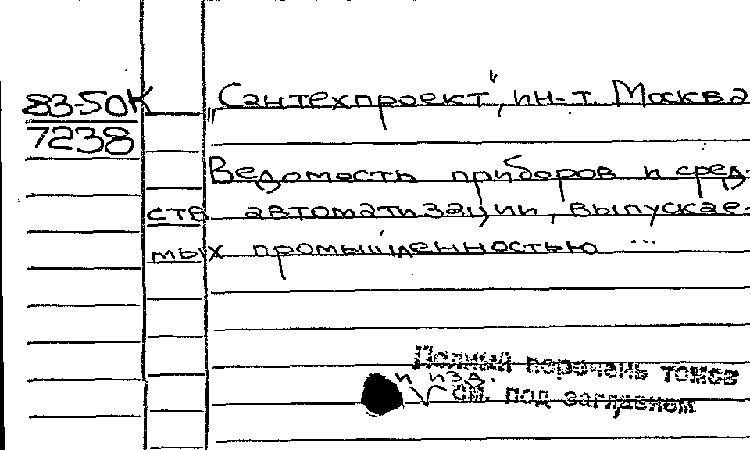 83-50К
7238
"Сантехпроект", ин-т. Москва
Ведомость приборов и сред-
ств автоматизации, выпускае-
мых промышленностью ...
Полный перечень томов
и изд.
см. под заглавием